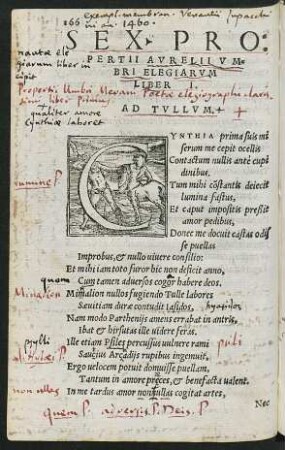 166
exempl. membran.
in an. 1460.
SEX. PRO:
PERTII AVRELII VM-
BRI ELEGIARVM
LIBER I.
Propertii Umbri Mevani Poetae elegiographi clariss.
liber primus
AD TVLLVM. +
qualiter amore
Cynthiae laboret
CYNTHIA prima suis mi
serum me cepit ocellis
Contactum nullis ante cupi
dinibus.
Tum mihi cõstantis deiecit
lumina fastus,
Et caput impositis pressit
amor pedibus,
Donec me docuit castas odis
se puellas
Improbus, & nullo vivere consilio:
Et mihi iam toto furor hic non deficit anno,
quom
Cum tamen adversos cogor habere deos.
Minalion
Mimalion nullos fugiendo Tulle labores
Saevitiam durae contudit Iasidos,
Nam modo Partheniis amens errabat in antris,
Ibat & hirsutas ille videre feras.
psylli
Ille etiam Psiles percussus vulnere rami
Saucius Arcadijs rupibus ingemuit,
Ergo velocem potuit domuisse puellam,
Tantum in amore preces, & benefacta valent.
non ullas
In me tardus amor nonnullas cogitat artes,
Nec
quom P. adversis P. Deis. P